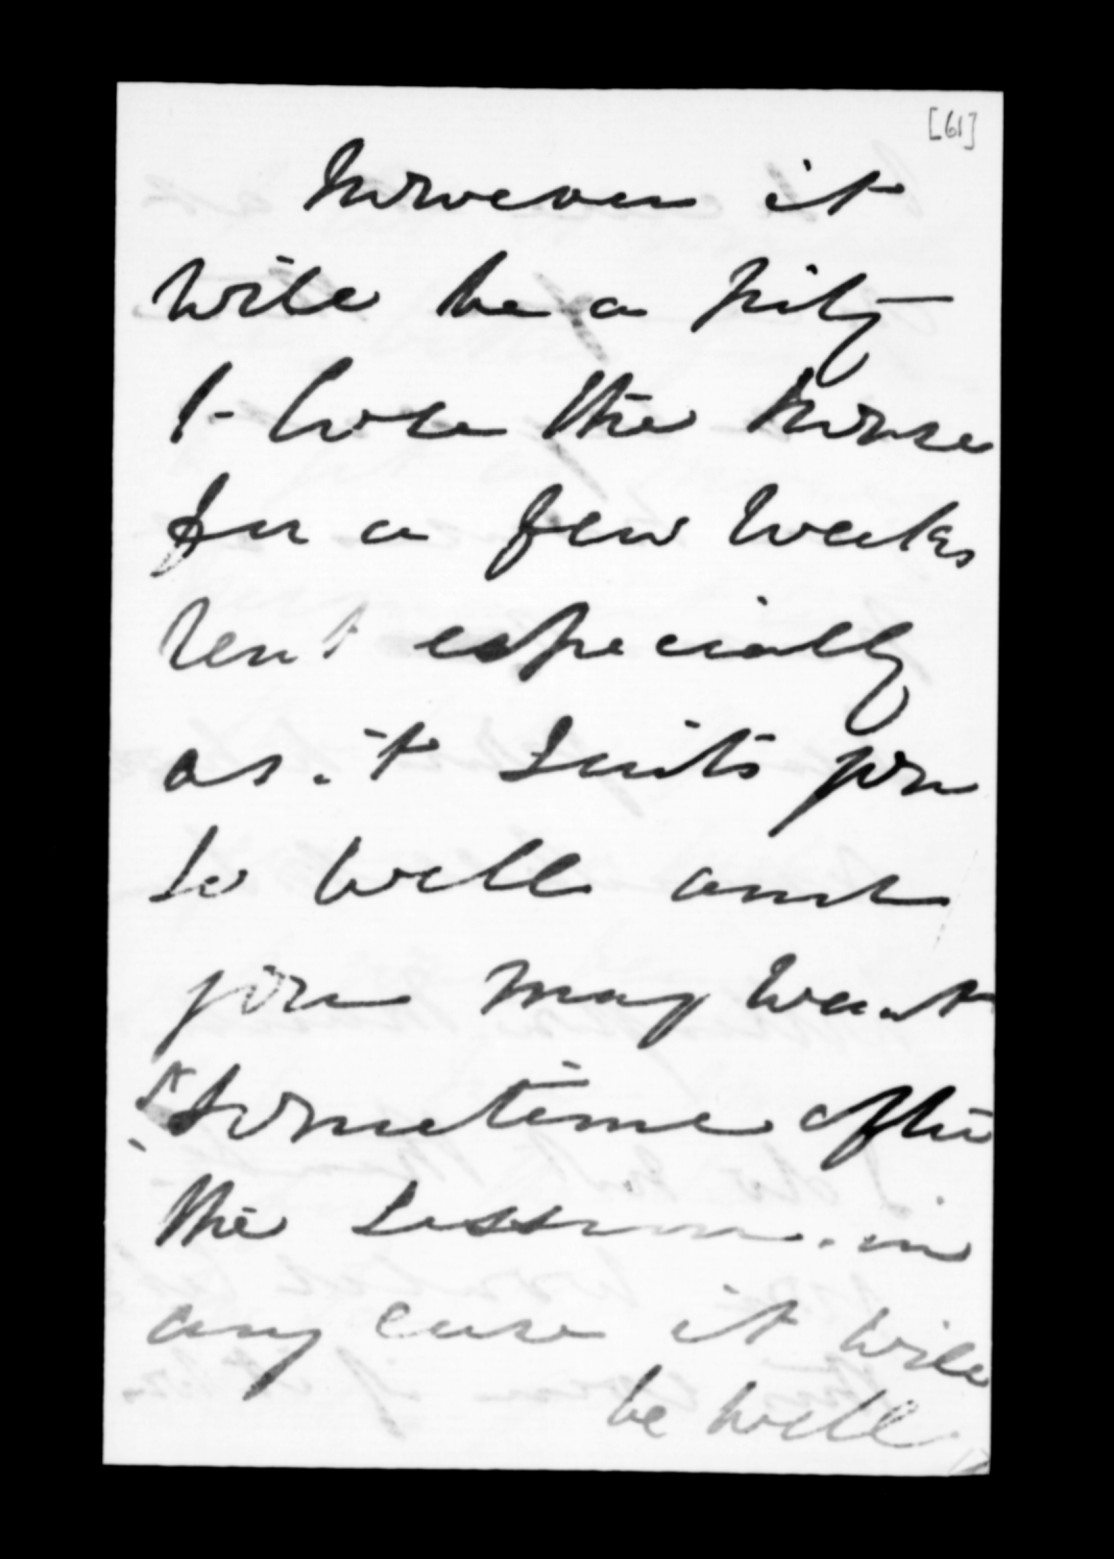 [61]
However it
will be a pity
to lose the house
for a few weeks
rent especially
as it suits you
so well and
you may want
it sometime after
the Session. in
any case it will
be well